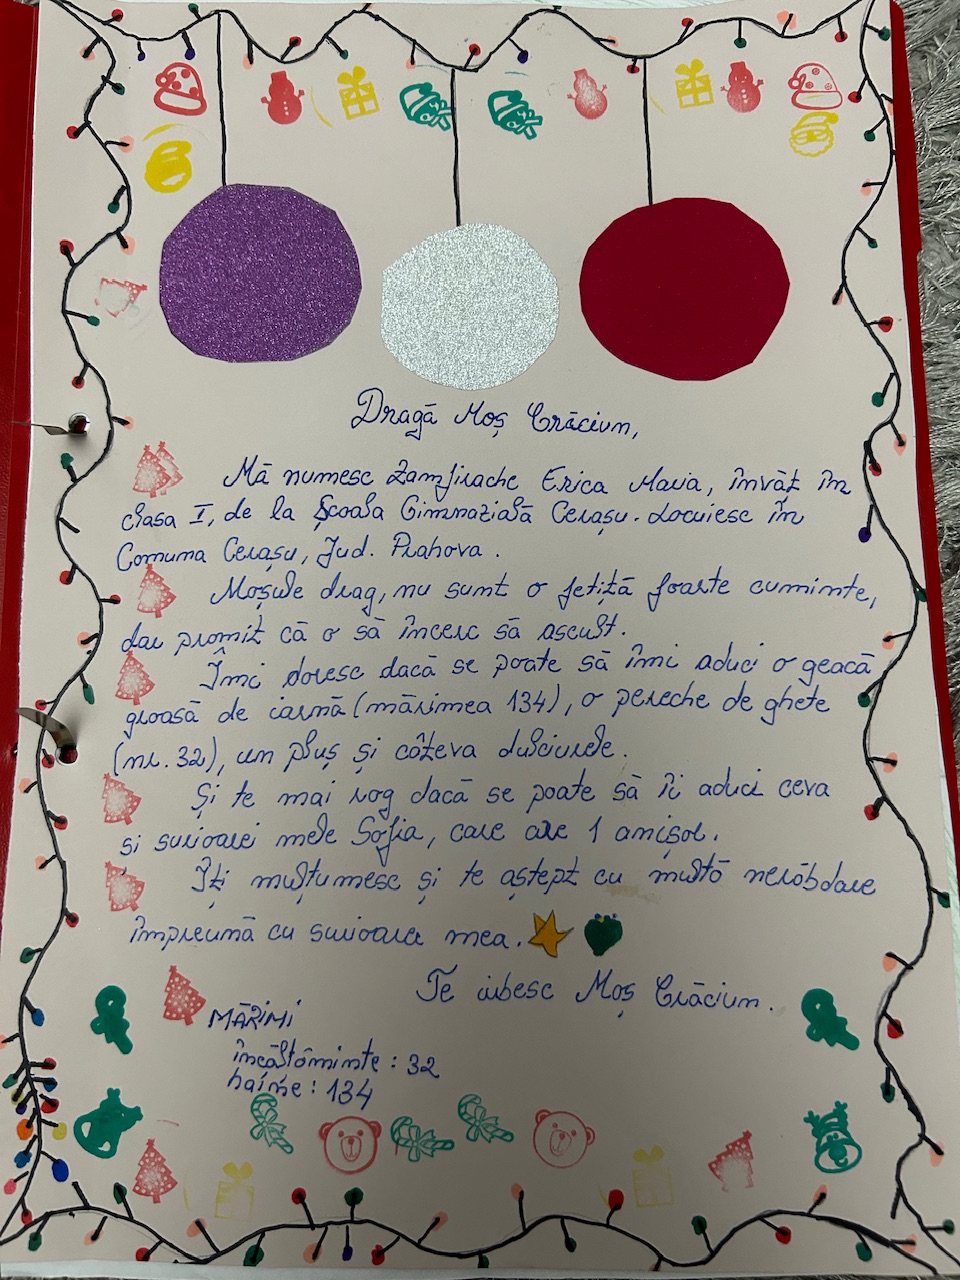 Dragă Moș Crăciun,
Mă numesc Zamfirache Erica Maria, învăț în
clasa I, de la Școala Gimnazială Cerașu. Locuiesc în
Comuna Cerașu, Jud. Prahova.
Moșule drag, nu sunt o fetiță foarte cuminte,
dar promit că o să încerc să ascult.
Îmi doresc dacă se poate să îmi aduci o geacă
groasă de iarnă (mărimea 134), o pereche de ghete
(nr. 32), un pluș și câteva dulciurele.
Și te mai rog dacă se poate să îi aduci ceva
si surioarei mele Sofia, care are 1 anișor.
Îți mulțumesc și te aștept cu multă nerăbdare
împreună cu surioara mea.
Te iubesc Moș Crăciun.
MĂRIMI
încălțăminte : 32
haine : 134